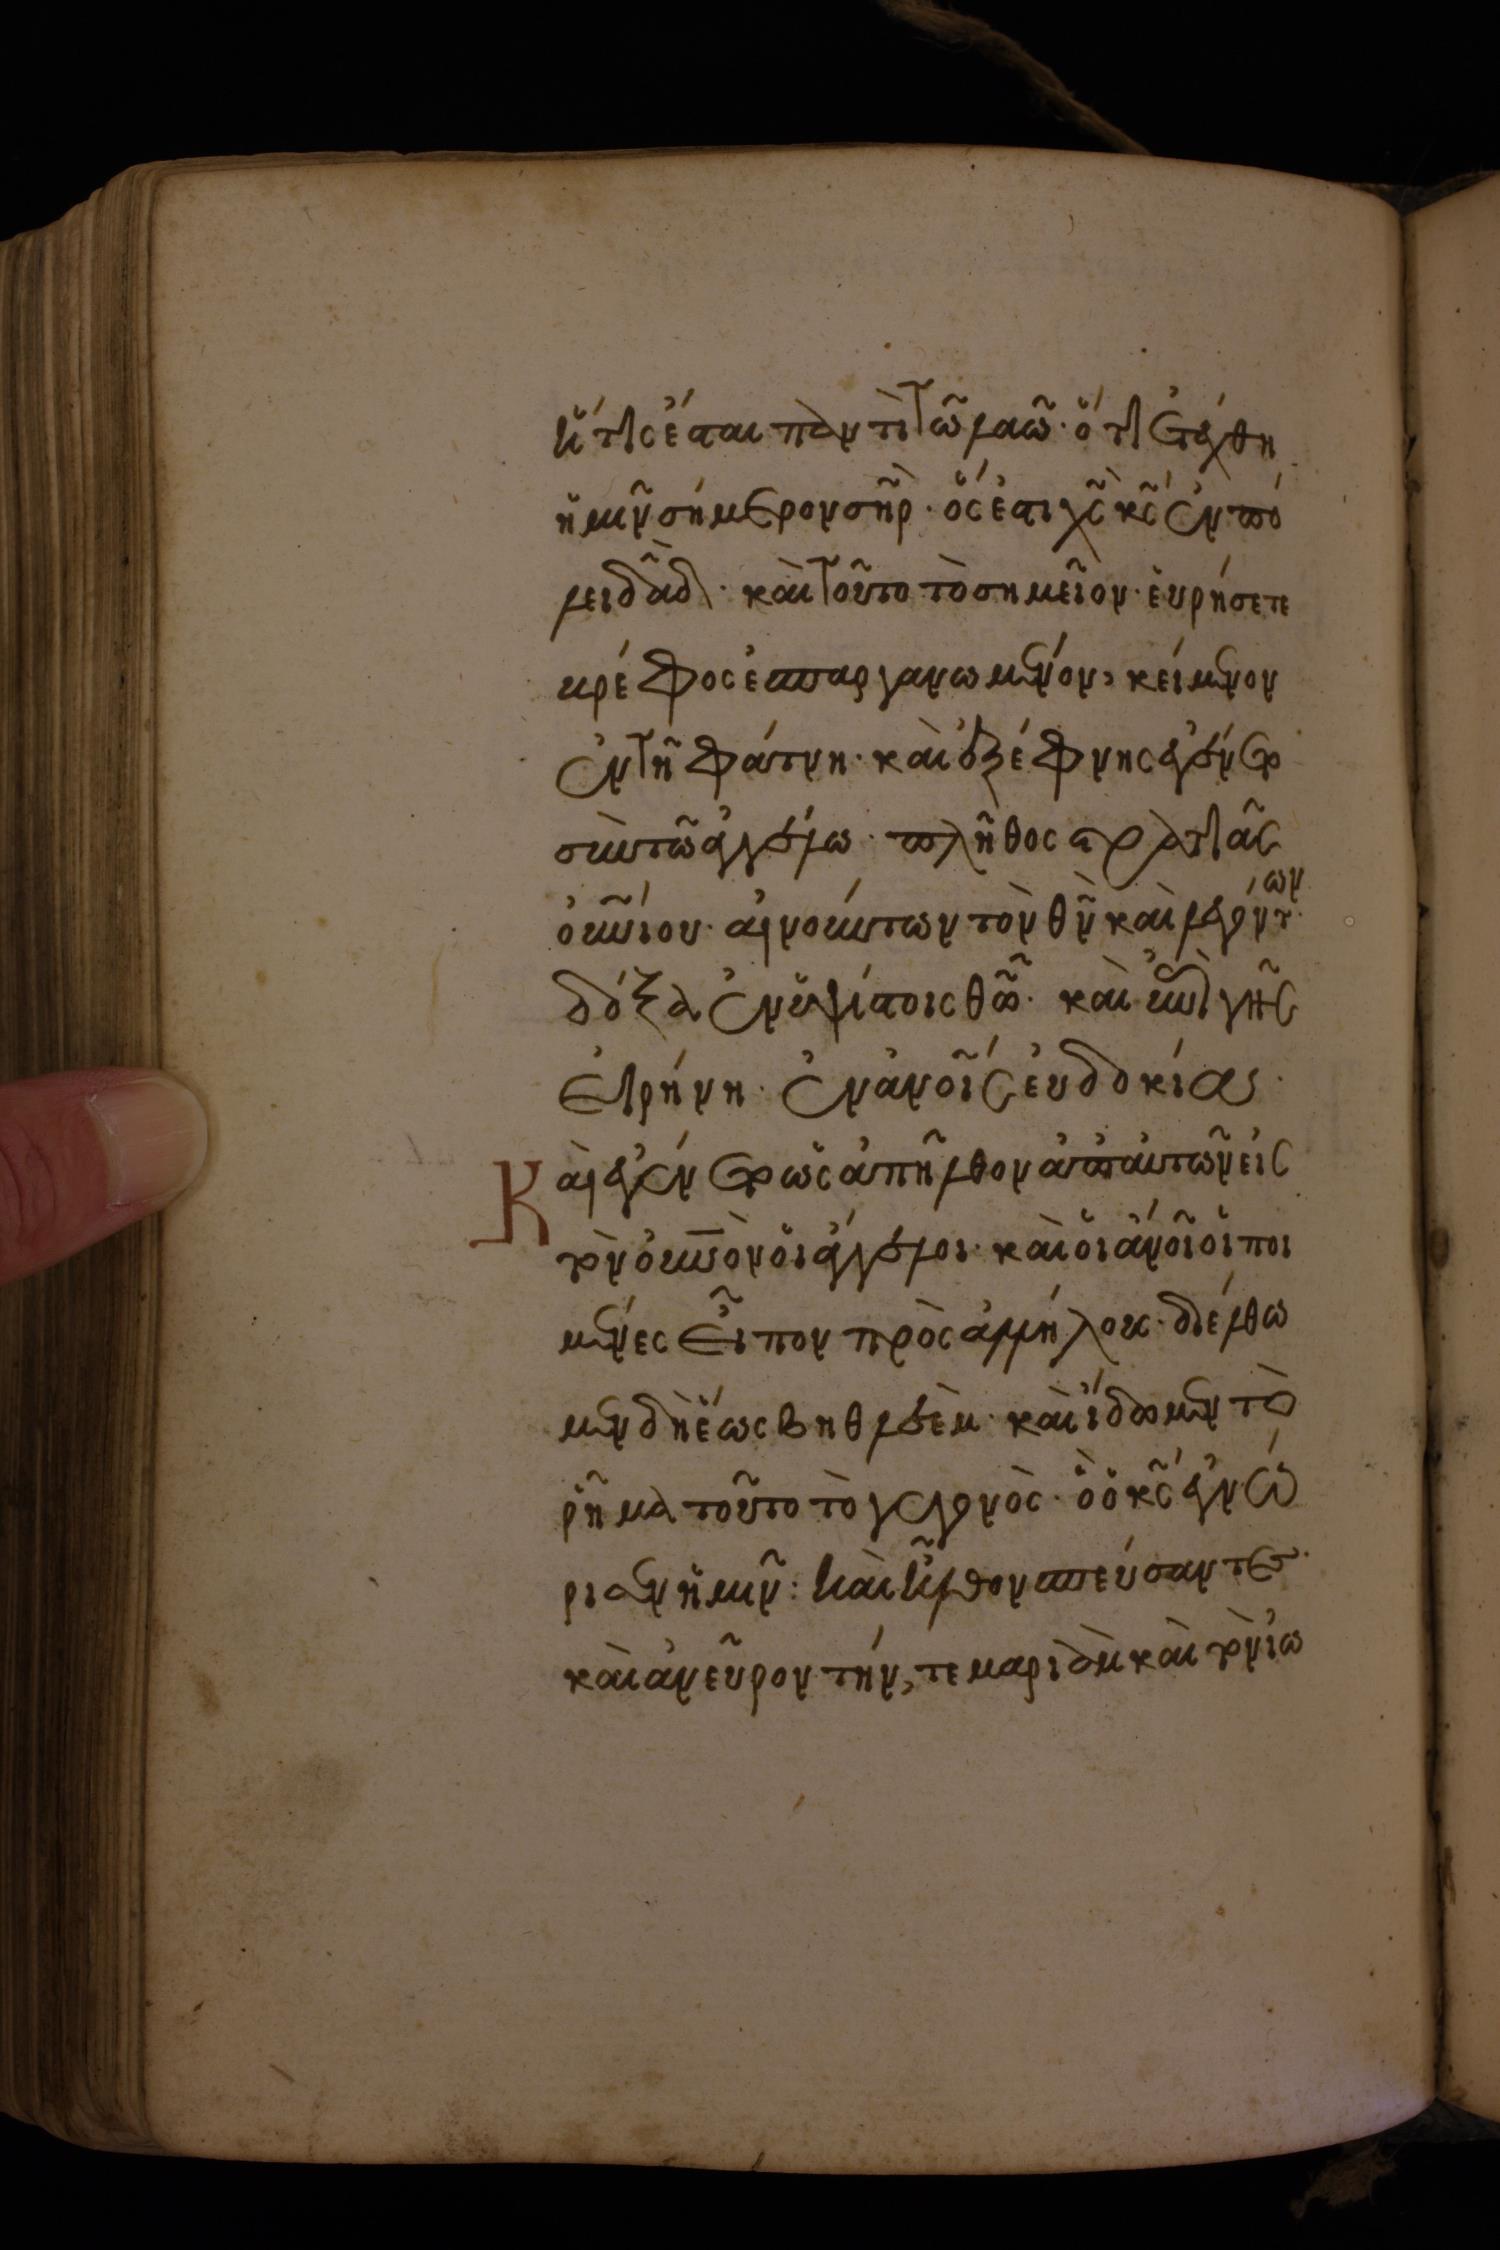 ἥτις ἔσται παντὶ τῶ λαῶ· ὅτι ἐτέχθη
ἡμῖν σήμερον σηρ· ὅς ἐστι χς κς ἐν πό
λει δαδ· καὶ τοῦτο τὸ σημεῖον· εὑρήσετε
βρέφος ἐσπαργανωμένον, κείμενον
ἐν τῆ φάτνη· καὶ ἐξέφνης ἐγένετο
σὺν τῶ ἀγγέλω· πλῆθος στρατιᾶς
οὐνίου· αἰνούντων τὸν θν καὶ λεγόντων·
δόξα ἐν ὑψίστοις θω· καὶ ἐπὶ γῆς
εἰρήνη· ἐν ἀνοις εὐδοκίας·
Καὶ ἐγένετο ὡς ἀπῆλθον ἀπ αὐτῶν εἰς
τὸν οὐνον οἱ ἄγγελοι· καὶ οἱ ἄνοι οἱ ποι
μένες εἶπον πρὸς ἀλλήλους· διέλθω
μεν δὴ ἕως βηθλεὲμ· καὶ ἴδωμεν τὸ
ρῆμα τοῦτο τὸ γεγονὸς· ὃ ὁ κς ἐγνώ
ρισεν ἡμῖν: καὶ ἦλθον σπεύσαντες·
καὶ ἀνεῦρον τήν, τε μαριὰμ καὶ τὸν ἰω